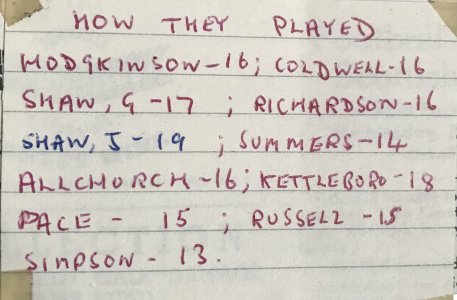 HOW THEY PLAYED
HODGKINSON-16; COLDWELL-16
SHAW, G-17 ; RICHARDSON-16
SHAW, J-19 ; SUMMERS-14
ALLCHURCH-16; KETTLEBORO-18
PACE - 15 ; RUSSELL -15
SIMPSON - 13.